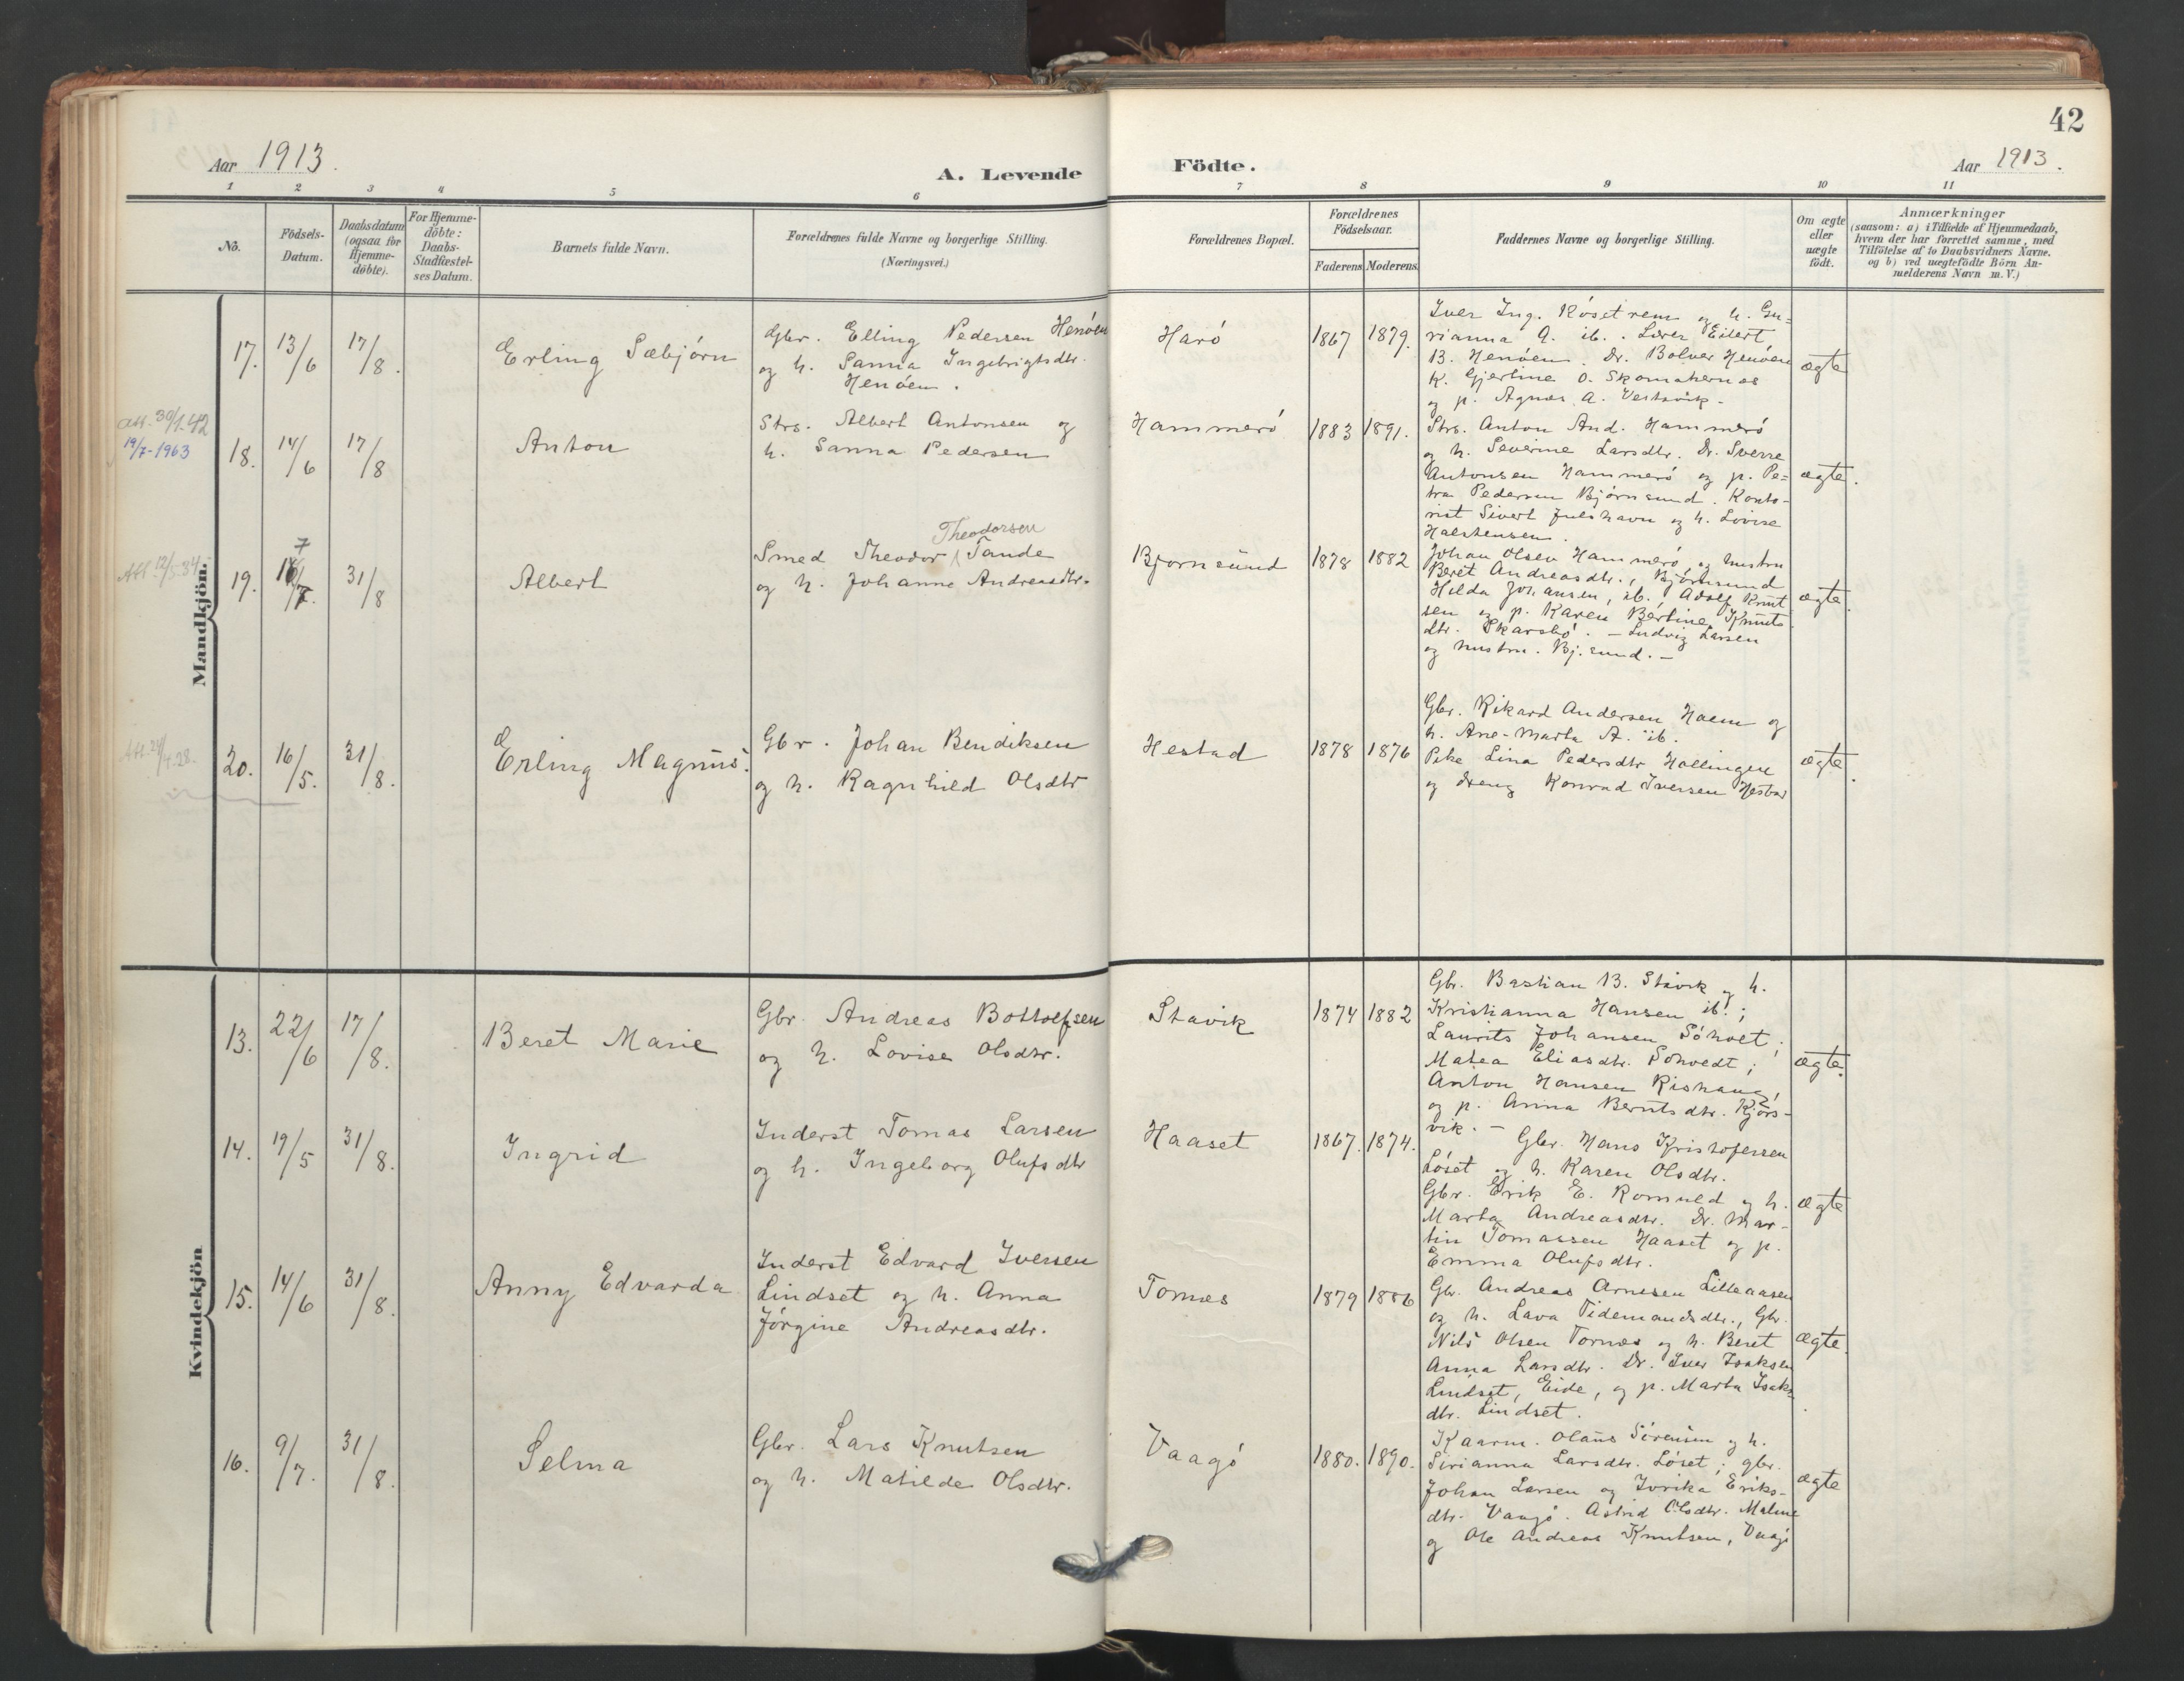 42
Aar 1913.
A. Levende
Födte.
Aar 1913.
1 2 3 4 5 6 7 8 9 10 11
No.
Födsels-Datum.
Daabsdatum (ogsaa for Hjemme-döbte).
For Hjemme-döbte: Daabs-Stadfæstel-ses Datum.
Barnets fulde Navn.
Forældrenes fulde Navne og borgerlige Stilling.
(Næringsvei.)
Forældrenes Bopæl.
Forældrenes Födselsaar.
Faderens Moderens
Faddernes Navne og borgerlige Stilling.
Om ægte eller uægte födt.
Anmærkninger
(saasom: a) i Tilfælde af Hjemmedaab,
hvem der har forrettet samme, med
Tilföielse af to Daabsvidners Navne,
og b) ved uægtefödte Börn An-
melderens Navn m. V.)
Mandkjön.
17. 13/6 17/8. Erling Sæbjörn
Gbr. Elling Pedersen Henöen
og h. Sanna Ingebrigtsdtr.
Henöen.
Harö 1867 1879.
Iver Ing. Röset rem og h. Gu=
rianna A. ib.. Lærer Eilert
B. Henöen. Dr. Bolver Henöen
K. Gjertine O. Skomakernes
og p. Agnes A. Vestavik.
ægte
Att. 30/1.42
19/7-1963
18. 14/6 17/8 Anton
Strs. Albert Antonsen og
h. Sanna Pedersen
Hammerö 1883 1891.
Strs. Anton And. Hammerö
og h. Severine Larsdtr. Dr. Sverre
Antonsen Hammerö og p. Pe=
tra Pedersen Björnsund. Konto-
rist Sivert Julshavn og h. Lovise
Halstensen.
ægte.
Att. 12/5.34
19. 31/8 Albert
Theodorsen
Smed Theodor Tande
og h. Johanne Andreasdtr.
Bjornsund 1878 1882
Johan Olsen Hammerö, og hustru
Beret Andreasdtr., Björnsund
Hilda Johansen, ib. Adolf Knut
sen og p. Karen Bertine Knuts
dtr. Skarsbö. - Ludvig Larsen
og hustru. Bj.sund. -
ægte.
20. 16/5. 31/8. Erling Magnus.
Gbr. Johan Bendiksen
og h. Ragnhild Olsdtr
Hestad 1878 1876
Gbr. Rikard Andersen Haem og
h. Ane-Marta A. ib.
Pike Lina Pedersdtr Hollingen
og dreng Konrad Iversen Hestad
ægte.
Kvindekjön
13. 22/6 17/8. Beret Marie
Gbr. Andreas Bottolfsen
og h. Lovise Olsdtr.
Stavik 1874 1882
Gbr. Bastian B. Stavik og h.
Kristianna Hansen ib.;
Laurits Johansen Söhoet;
Matea Eliasdtr. Sohoedt;
Anton Hansen Rishaug,
og p. Anna Berntsdtr. Kjörs-
vik. -
ægte.
14. 19/5 31/8. Ingrid
Inderst Tomas Larsen
og h. Ingeborg Olufsdtr
Haaset 1867. 1874.
Gbr. Hans Kristofersen
Löset og h. Karen Olsdtr.
Gbr. Erik E. Romuld og h.
Marta Andreasdtr. Dr. Mar-
tin Tomassen Haaset og p.
Emma Olufsdtr.
ægte
15. 14/6 31/8. Anny Edvarda
Inderst Edvard Iversen
Lindset og h. Anna
Jörgine Andreasdtr.
Tornes 1879 1886
Gbr. Andreas Arnesen Lilleaasen
og h. Lava Tidemandsdtr., Gbr.
Nils Olsen Tornes og h. Beret
Anna Larsdtr. Dr. Iver Isaksen
Lindset, Eide, og p. Marta Isaks
dtr. Lindset.
ægte.
16. 9/7. 31/8. Selma
Gbr. Lars Knutsen
og h. Matilde Olsdtr.
Vaagö 1880. 1890.
Kaarm. Olaus Sörensen og h.
Sirianna Larsdtr. Löset; gbr.
Johan Larsen og Ivrika Eriks-
dtr. Vaagö. Astrid Olsdtr. Malme
og Ole Andreas Knutsen, Vaagö
ægte